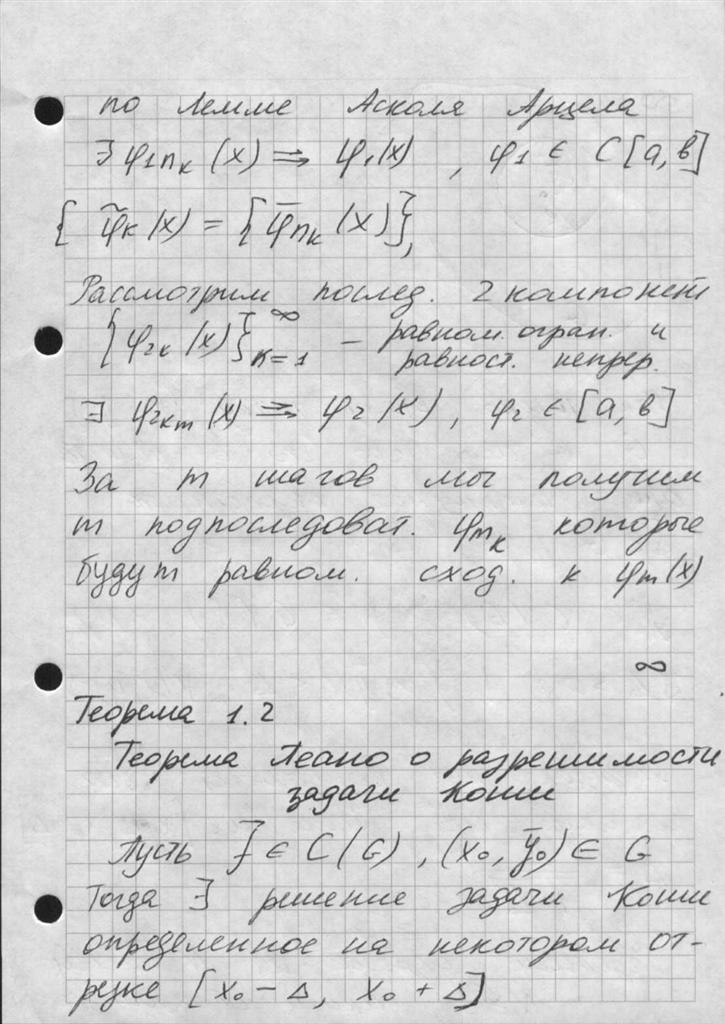 по Лемме Асколя Арцела
∃ φ₁ₙₖ(x) ⇉ φ₁(x) , φ₁ ∈ C[a, в]
{ φ̃ₖ(x) = { φ̄ₙₖ(x) },
Рассмотрим послед. 2 компонент
{φ₂ₖ(x)}^∞_{k=1} – равном. огран. и
равност. непрер.
∃ φ₂ₖₘ(x) ⇉ φ₂(x), φ₂ ∈ [a, в]
За m шагов мы получим
m подпоследоват. φₘₖ которые
будут равном. сход. к φₘ(x)
∞
Теорема 1.2
Теорема Пеано о разрешимости
задачи Коши
Пусть f̄ ∈ C(G) , (x₀, ȳ₀) ∈ G
Тогда ∃ решение задачи Коши
определенное на некотором от-
резке [x₀ – Δ, x₀ + Δ]